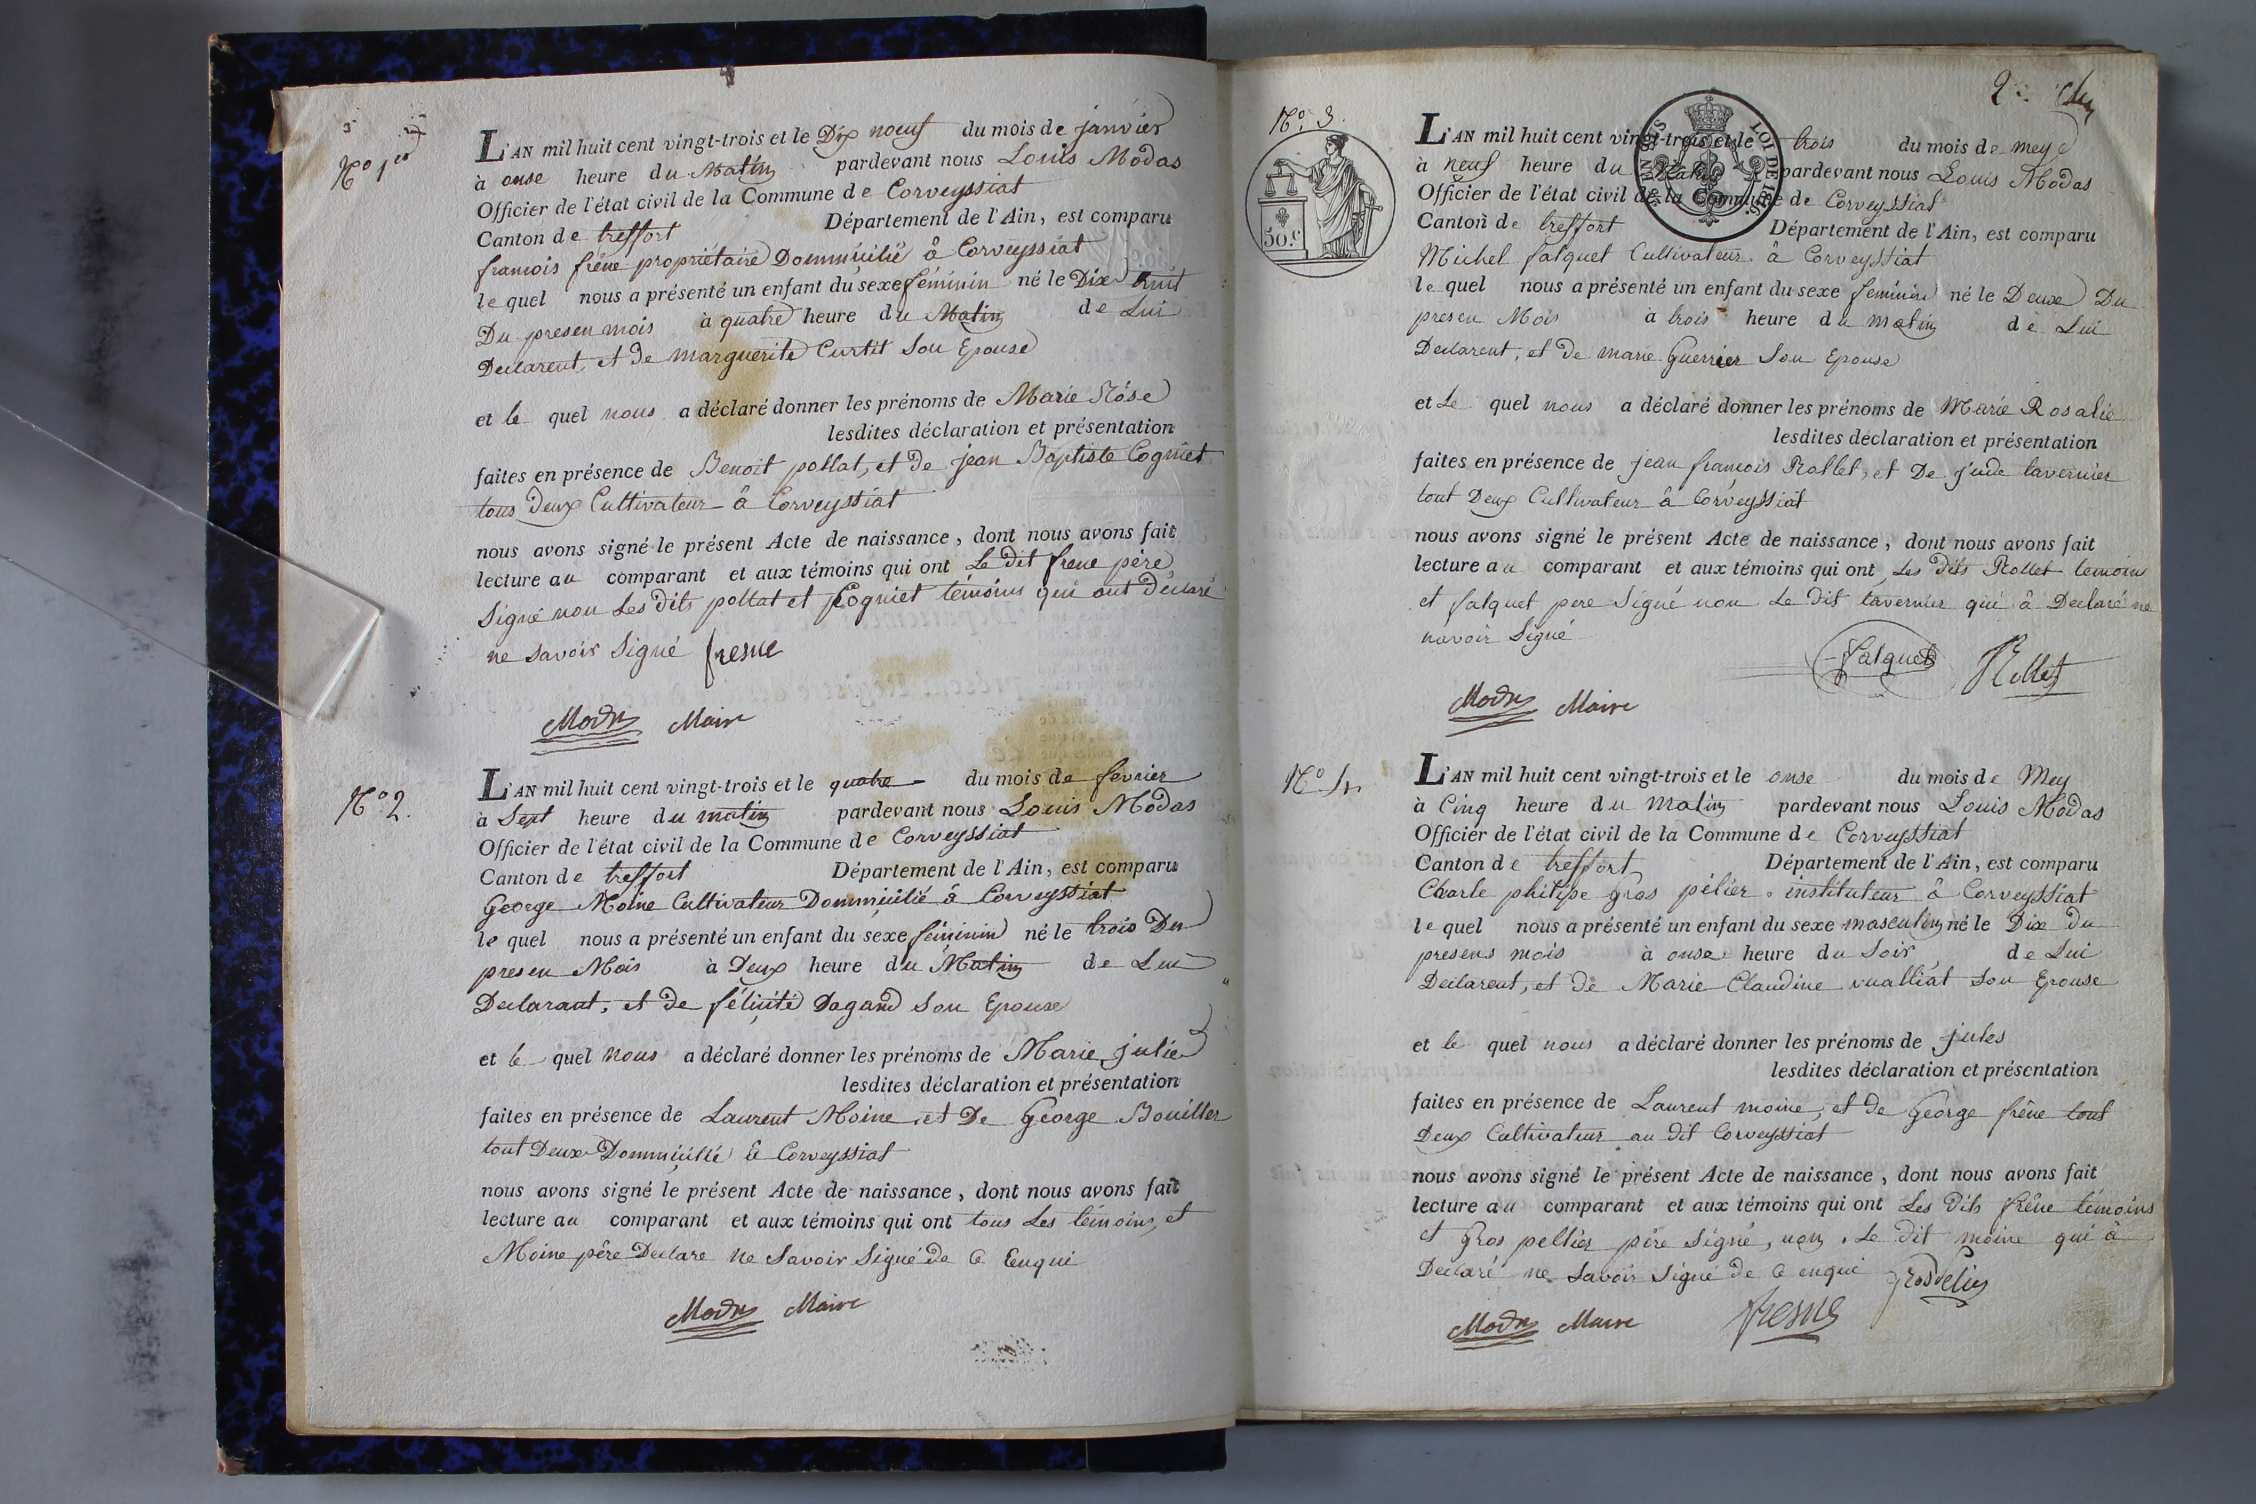 No 1er
L'AN mil huit cent vingt-trois et le Dix noeuf du mois de janvier
à onse heure du Matin pardevant nous Louis Modas
Officier de l'état civil de la Commune de Corveyssiat
Canton de treffort Département de l'Ain, est comparu
francois frêne propriétaire Dommicilié â Corveyssiat
le quel nous a présenté un enfant du sexe féminin né le Dix huit
Du presen mois à quatre heure du Matin de Lui
Declarent, et de marguerite Curtit Son Epouse
et le quel nous a déclaré donner les prénoms de Marie Rôse
lesdites déclaration et présentation
faites en présence de Benoit pollat, et de jean Baptiste Cogniet
tous Deux Cultivateur â Corveyssiat
nous avons signé le présent Acte de naissance, dont nous avons fait
lecture au comparant et aux témoins qui ont Le dit frêne père
Signé non Les dits pollat et Cogniet témoins qui ont Déclaré
ne savoir Signé fresne
Modas Maire
No 2.
L'AN mil huit cent vingt-trois et le quatre du mois de fevrier
à Sept heure du matin pardevant nous Louis Modas
Officier de l'état civil de la Commune de Corveyssiat
Canton de treffort Département de l'Ain, est comparu
George Moine Cultivateur Dommicilié â Corveyssiat
le quel nous a présenté un enfant du sexe féminin né le trois Du
presen Mois à Deux heure du Matin de Lui
Declarant, et de félicité Dagand Son Epouse
et le quel nous a déclaré donner les prénoms de Marie julie
lesdites déclaration et présentation
faites en présence de Laurent Moine et De George Bouiller
tout Deux Dommicillé â Corveyssiat
nous avons signé le présent Acte de naissance, dont nous avons fait
lecture au comparant et aux témoins qui ont tous Les témoins, et
Moine père Declare ne Savoir Signé de Ce Enqui
Modas Maire
2e
No 3.
50.c
LOI DE 1816.
L'AN mil huit cent vingt-trois et le trois du mois de mey
à neuf heure du Matin pardevant nous Louis Modas
Officier de l'état civil de la Commune de Corveyssiat
Canton de treffort Département de l'Ain, est comparu
Michel falquet Cultivateur â Corveyssiat
le quel nous a présenté un enfant du sexe feminin né le Deux Du
presen Mois à trois heure du matin de Lui
Declarent, et de marie Guerrier Son Epouse
et Le quel nous a déclaré donner les prénoms de Marie Rosalie
lesdites déclaration et présentation
faites en présence de jean francois Rollet, et De jude tavernier
tout Deux Cultivateur â Corveyssiat
nous avons signé le présent Acte de naissance, dont nous avons fait
lecture au comparant et aux témoins qui ont Les dits Rollet temoins
et falquet pere Signé non Le dit tavernier qui â Declaré ne
navoir Signé
falquet Rollet
Modas Maire
No 4.
L'AN mil huit cent vingt-trois et le onse du mois de Mey
à Cinq heure du Matin pardevant nous Louis Modas
Officier de l'état civil de la Commune de Corveyssiat
Canton de treffort Département de l'Ain, est comparu
Charle philipe Gros pélier instituteur â Corveyssiat
le quel nous a présenté un enfant du sexe masculin né le Dix du
presens mois à onse heure du Soir de Lui
Declarent, et de Marie Claudine vualliat Son Epouse
et le quel nous a déclaré donner les prénoms de jules
lesdites déclaration et présentation
faites en présence de Laurent moine, et de George frêne tout
Deux Cultivateur au dit Corveyssiat
nous avons signé le présent Acte de naissance, dont nous avons fait
lecture au comparant et aux témoins qui ont Les dits frêne témoins
et Gros pellier père Signé, non Le dit moine qui â
Declaré ne Savoir Signé de Ce enqui
Modas Maire fresne